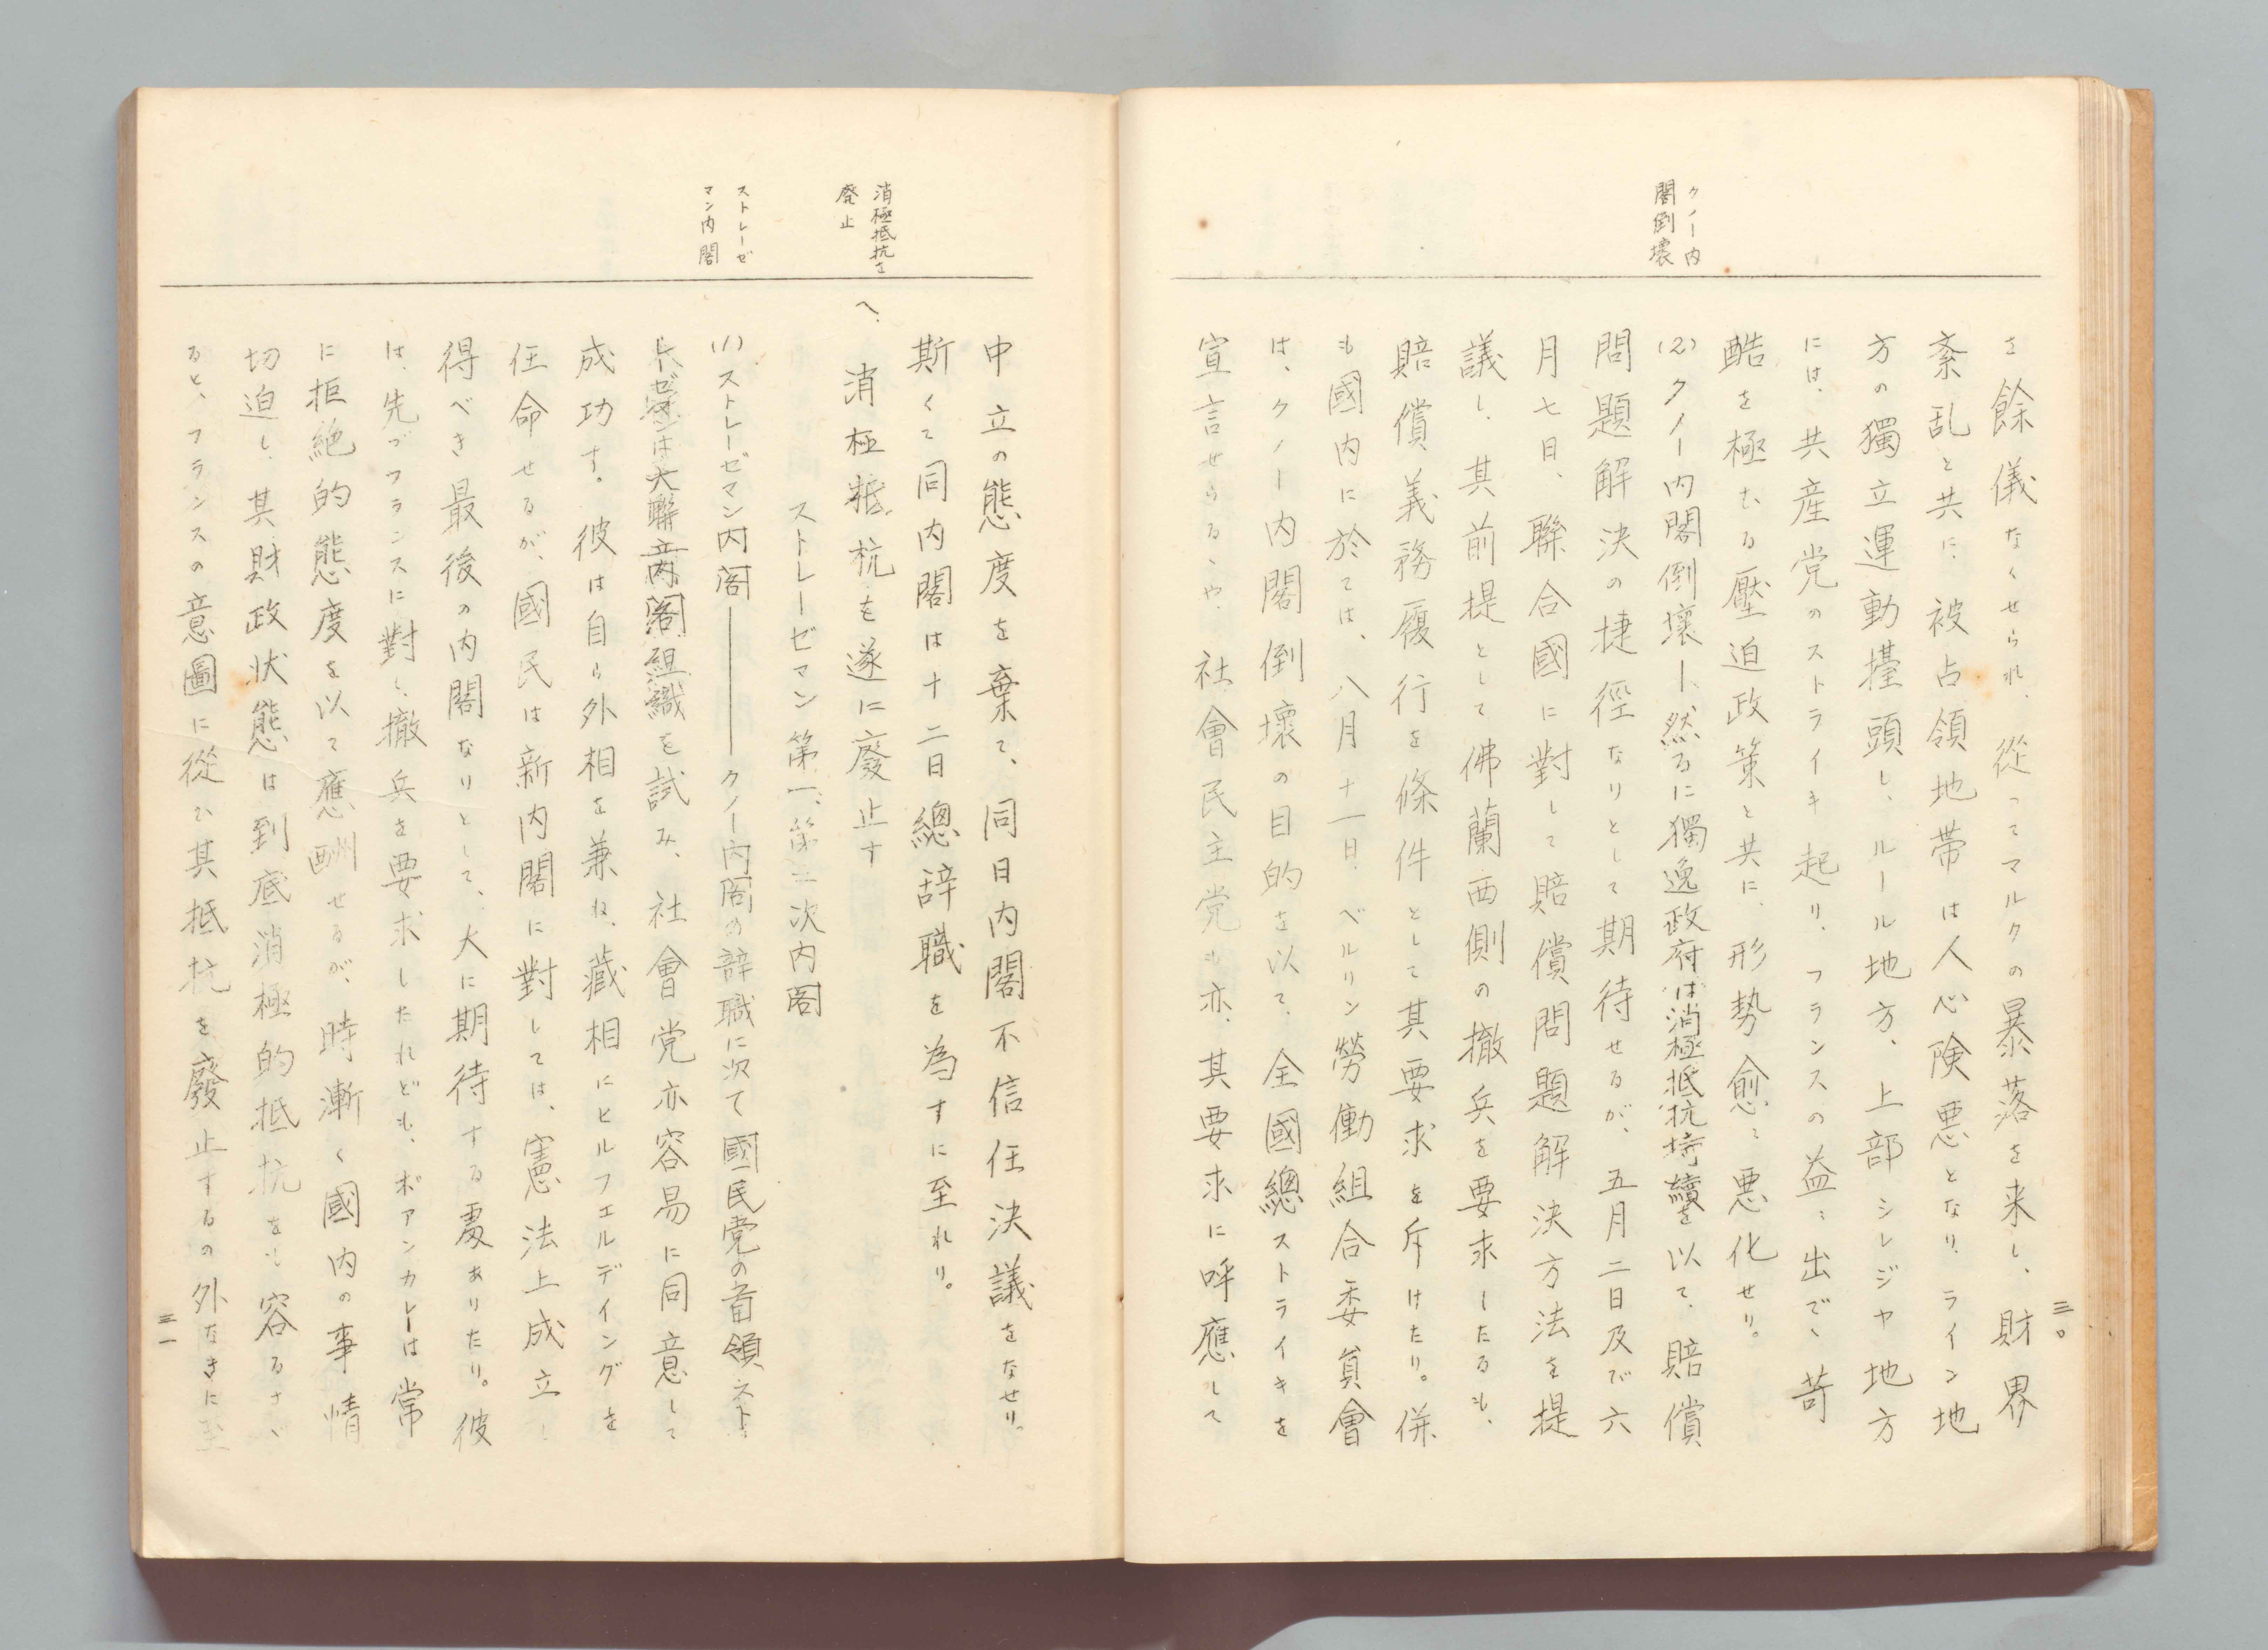 三〇
クノー内
閣倒壊
を餘儀なくせられ、從つてマルクの暴落を来し、財界
紊乱と共に、被占領地帯は人心険悪となり、ライン地
方の獨立運動擡頭し、ルール地方、上部シレジヤ地方
には、共産党のストライキ起り、フランスの益〻出で、苛
酷を極むる壓迫政策と共に、形勢愈〻悪化せり。
(2)クノー内閣倒壊―、然るに獨逸政府は消極抵抗持續を以て、賠償
問題解決の捷徑なりとして期待せるが、五月二日及び六
月七日、聯合國に對して賠償問題解決方法を提
議し、其前提として佛蘭西側の撤兵を要求したるも、
賠償義務履行を條件として其要求を斥けたり。併
も國内に於ては、八月十一日、ベルリン勞働組合委員會
は、クノー内閣倒壊の目的を以て、全國總ストライキを
宣言せらるゝや、社會民主党も亦、其要求に呼應して
消極抵抗を
廃止
ストレーゼ
マン内閣
中立の態度を棄て、同日内閣不信任決議をなせり。
斯くて同内閣は十二日總辞職を為すに至れり。
へ、消極抵抗を遂に廢止す
ストレーゼマン第一、第二次内閣
(1)ストレーゼマン内閣―――クノー内閣の辞職に次て國民党の首領スト
レーゼマンは大聯立内閣組織を試み、社會党亦容易に同意して
成功す。彼は自ら外相を兼ね、藏相にヒルフエルデイングを
任命せるが、國民は新内閣に對しては、憲法上成立し
得べき最後の内閣なりとして、大に期待する處ありたり。彼
は、先づフランスに對し、撤兵を要求したれども、ポアンカレーは常
に拒絶的態度を以て應酬せるが、時漸く國内の事情
切迫し、其財政状態は到底消極的抵抗をも容るさゞ
ると、フランスの意圖に從ひ其抵抗を廢止するの外なきに至
三一